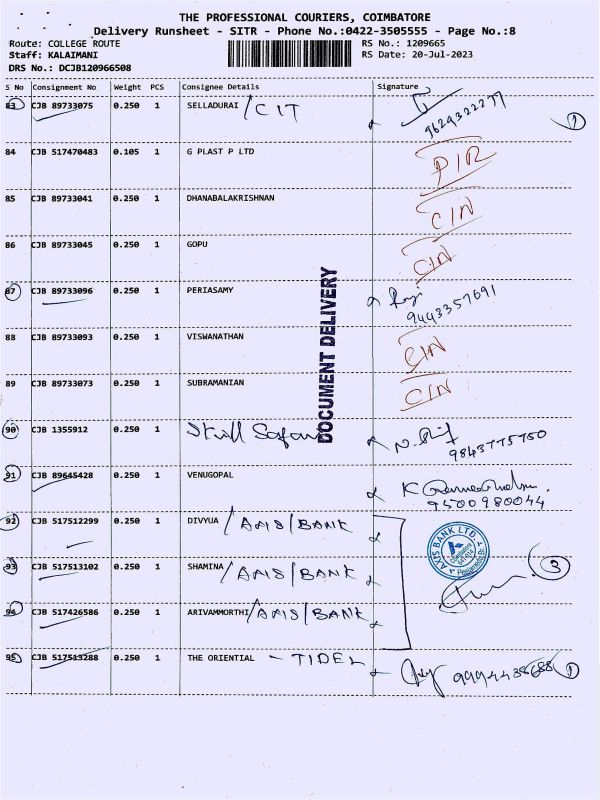 THE PROFESSIONAL COURIERS, COIMBATORE
Delivery Runsheet - SITR - Phone No.:0422-3505555 - Page No.:8
Route: COLLEGE ROUTE RS No.: 1209665
Staff: KALAIMANI RS Date: 20-Jul-2023
DRS No.: DCJB120966508
S No Consignment No Weight PCS Consignee Details Signature
83 CJB 89733075 0.250 1 SELLADURAI /CIT 9629322277 1
84 CJB 517470483 0.105 1 G PLAST P LTD P/R
85 CJB 89733041 0.250 1 DHANABALAKRISHNAN C/N
86 CJB 89733045 0.250 1 GOPU C/N
87 CJB 89733096 0.250 1 PERIASAMY 9443357691
DOCUMENT DELIVERY
88 CJB 89733093 0.250 1 VISWANATHAN C/N
89 CJB 89733073 0.250 1 SUBRAMANIAN C/N
90 CJB 1355912 0.250 1 Skill Safari 9843775750
91 CJB 89645428 0.250 1 VENUGOPAL 9500980044
92 CJB 517512299 0.250 1 DIVYUA /AXIS/BANK
AXIS BANK LTD
Coimbatore
641 014
93 CJB 517513102 0.250 1 SHAMINA /AXIS/BANK 3
94 CJB 517426586 0.250 1 ARIVAMMORTHI /AXIS/BANK
95 CJB 517513288 0.250 1 THE ORIENTIAL - TIDEL 1